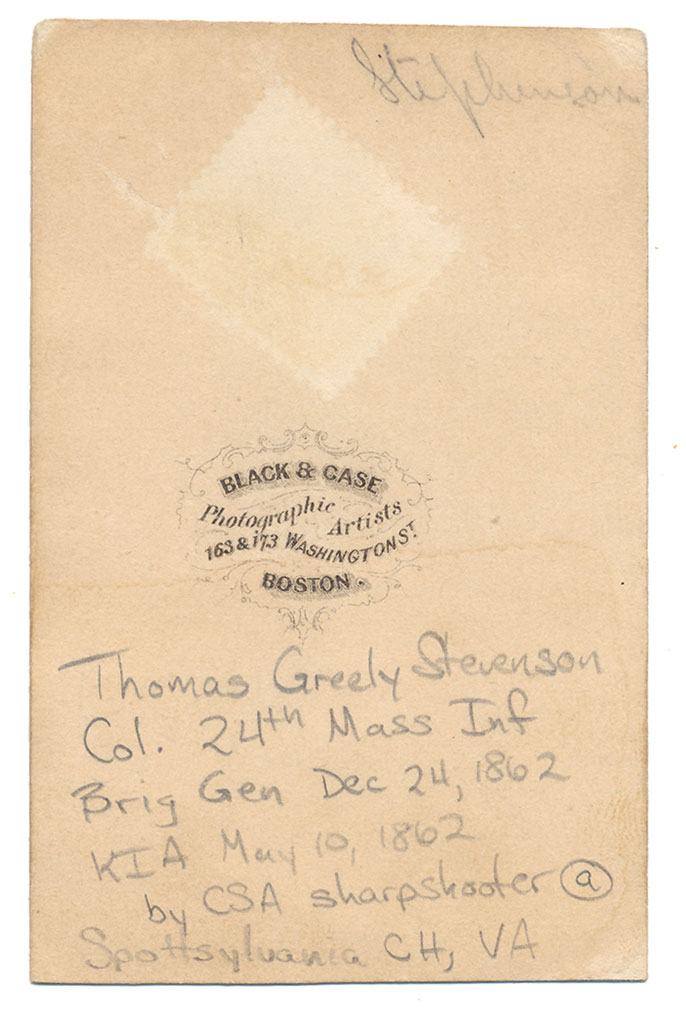 Stephenson
BLACK & CASE
Photographic Artists
163 & 173 WASHINGTON ST.
BOSTON.
Thomas Greely Stevenson
Col. 24th Mass Inf
Brig Gen Dec 24, 1862
KIA May 10, 1862
by CSA sharpshooter @
Spottsylvania CH, VA